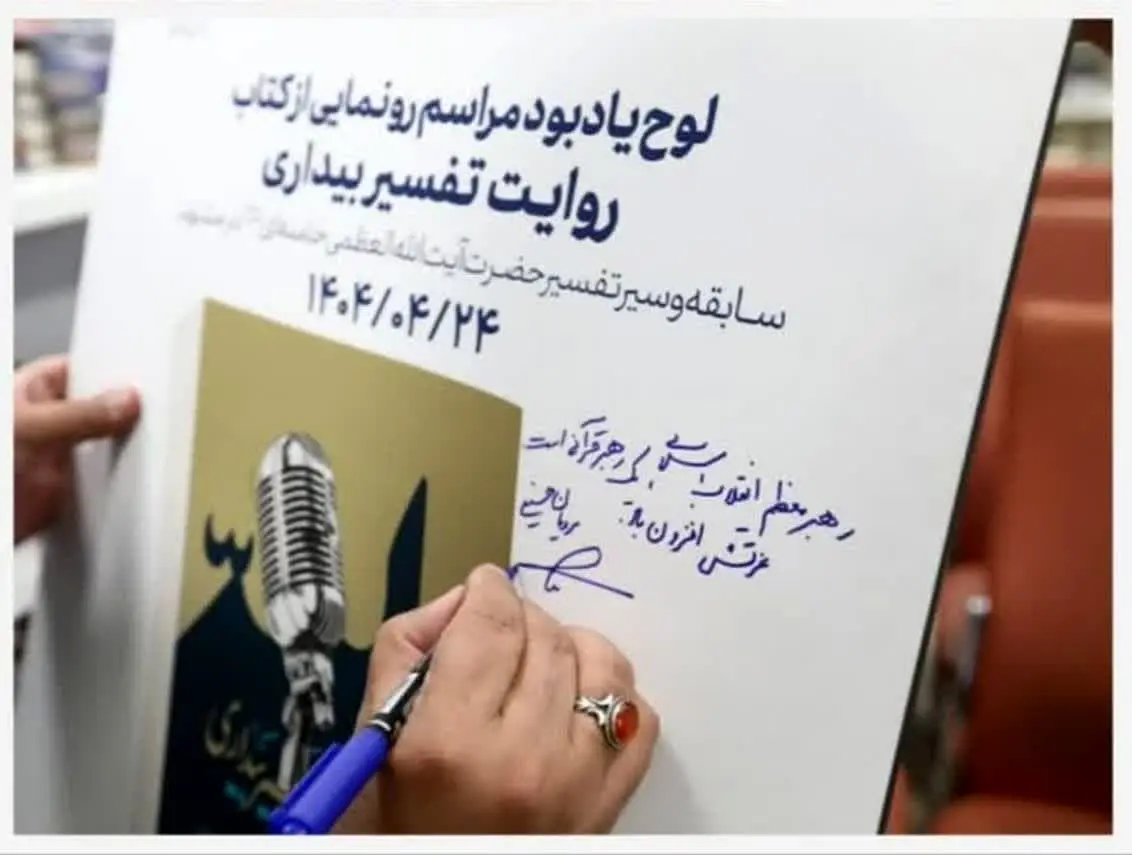 لوح یادبود مراسم رونمایی از کتاب
روایت تفسیر بیداری
سابقه و سیر تفسیر حضرت آیت‌الله العظمی خامنه‌ای در مشهد
۱۴۰۴/۰۴/۲۴
رهبر معظم انقلاب اسلامی رهبر قرآنی است
عزتش افزون باد.